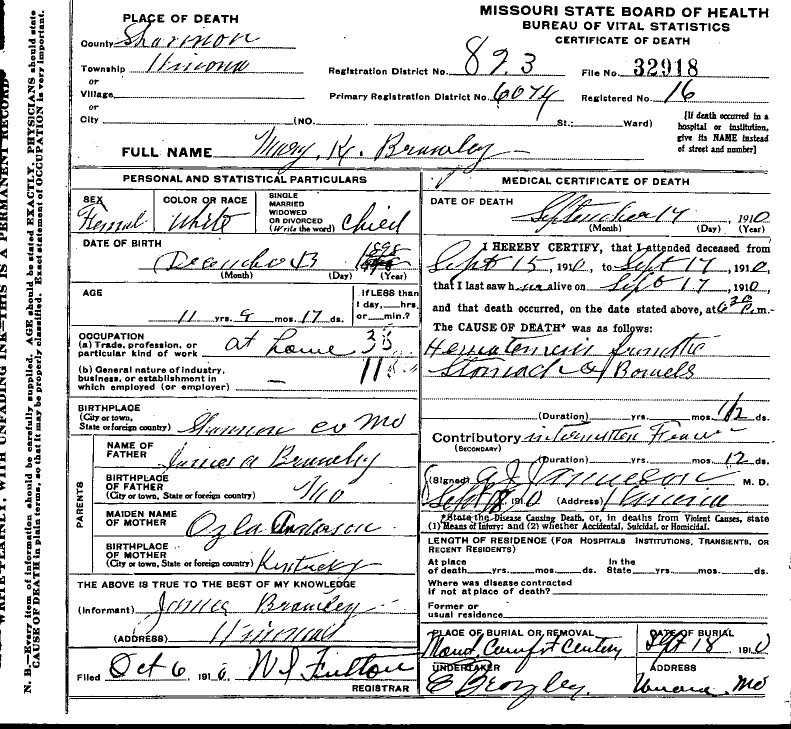 MISSOURI STATE BOARD OF HEALTH
BUREAU OF VITAL STATISTICS
CERTIFICATE OF DEATH
PLACE OF DEATH
County Shannon
Township Winona
or
Village
or
City (NO. St.; Ward)
Registration District No. 823 File No. 32918
Primary Registration District No. 6074 Registered No. 16
[If death occurred in a hospital or institution, give its NAME instead of street and number]
FULL NAME Mary. K. Brawley
PERSONAL AND STATISTICAL PARTICULARS
SEX Femal
COLOR OR RACE White
SINGLE MARRIED WIDOWED OR DIVORCED (Write the word) Chied
DATE OF BIRTH
December 1898
(Month) (Day) (Year)
AGE
11 yrs. 9 mos. 17 ds.
If LESS than 1 day, hrs. or min.?
OCCUPATION
(a) Trade, profession, or particular kind of work at home
(b) General nature of industry, business, or establishment in which employed (or employer) —
BIRTHPLACE
(City or town, State or foreign country) Shannon co Mo
PARENTS
NAME OF FATHER James a Brawley
BIRTHPLACE OF FATHER (City or town, State or foreign country) Mo
MAIDEN NAME OF MOTHER Ozla Anderson
BIRTHPLACE OF MOTHER (City or town, State or foreign country) Kentucky
THE ABOVE IS TRUE TO THE BEST OF MY KNOWLEDGE
(Informant) James Brawley
(ADDRESS) Winona
Filed Oct 6 191 0. W S Fulton
REGISTRAR
MEDICAL CERTIFICATE OF DEATH
DATE OF DEATH
September 17, 1910
(Month) (Day) (Year)
I HEREBY CERTIFY, that I attended deceased from
Sept 15, 1910, to Sept 17, 1910,
that I last saw h er alive on Sept 17, 1910,
and that death occurred, on the date stated above, at 6 30 P.m.
The CAUSE OF DEATH* was as follows:
Hematemesis from the
Stomach & Bowels
(Duration) yrs. mos. 1/2 ds.
Contributory intermitten Fever
(SECONDARY)
(Duration) yrs. mos. 12 ds.
(Signed) Jamieson M. D.
Sept 18, 1910 (Address) Winona
*State the Disease Causing Death, or, in deaths from Violent Causes, state
(1) Means of Injury; and (2) whether Accidental, Suicidal, or Homicidal.
LENGTH OF RESIDENCE (FOR HOSPITALS, INSTITUTIONS, TRANSIENTS, OR RECENT RESIDENTS)
At place of death yrs. mos. ds. In the State yrs. mos. ds.
Where was disease contracted if not at place of death?
Former or usual residence
PLACE OF BURIAL OR REMOVAL Mount Comfort Cemetery
DATE OF BURIAL Sept 18 1910
UNDERTAKER
ADDRESS Winona Mo
WRITE PLAINLY, WITH UNFADING INK—THIS IS A PERMANENT RECORD
N. B.—Every item of information should be carefully supplied. AGE should be stated EXACTLY. PHYSICIANS should state
CAUSE OF DEATH in plain terms, so that it may be properly classified. Exact statement of OCCUPATION is very important.